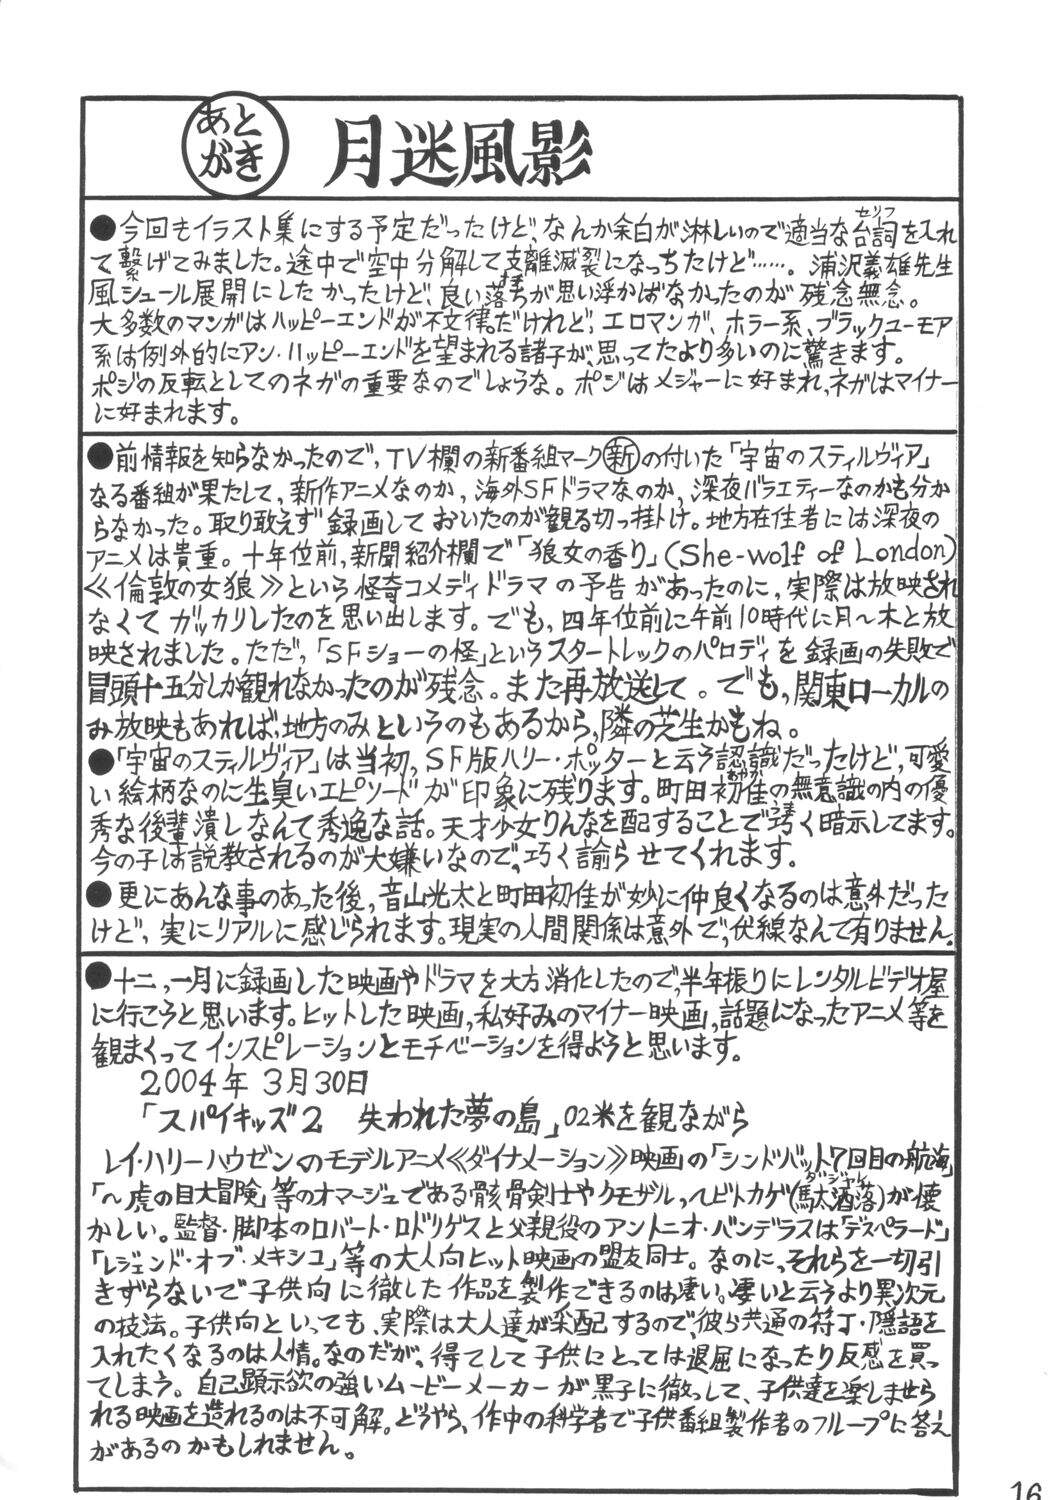 あとがき 月迷風影
●今回もイラスト集にする予定だったけど、なんか余白が淋しいので適当な台詞(セリフ)を入れ
て繋げてみました。途中で空中分解して支離滅裂になっちたけど……。浦沢義雄先生
風シュール展開にしたかったけど、良い落ちが思い浮かばなかったのが残念無念。
大多数のマンガはハッピーエンドが不文律だけれど、エロマンガ、ホラー系、ブラックユーモア
系は例外的にアン・ハッピーエンドを望まれる諸子が、思ってたより多いのに驚きます。
ポジの反転としてのネガの重要なのでしょうな。ポジはメジャーに好まれ、ネガはマイナー
に好まれます。
●前情報を知らなかったので、TV欄の新番組マーク新の付いた「宇宙のスティルヴィア」
なる番組が果たして、新作アニメなのか、海外SFドラマなのか、深夜バラエティーなのかも分か
らなかった。取り敢えず録画しておいたのが観る切っ掛け。地方在住者には深夜の
アニメは貴重。十年位前、新聞紹介欄で「狼女の香り」(She-wolf of London)
≪倫敦の女狼≫という怪奇コメディドラマの予告があったのに、実際は放映され
なくてガッカリしたのを思い出します。でも、四年位前に午前10時代に月〜木と放
映されました。ただ、「SFショーの怪」というスタートレックのパロディを録画の失敗で
冒頭十五分しか観れなかったのが残念。また再放送して。でも、関東ローカルの
み放映もあれば、地方のみというのもあるから、隣の芝生かもね。
●「宇宙のスティルヴィア」は当初、SF版ハリー・ポッターと云う認識だったけど、可愛
い絵柄なのに生臭いエピソードが印象に残ります。町田初佳の無意識の内の優
秀な後輩潰しなんて秀逸な話。天才少女りんなを配することで巧く暗示してます。
今の子は説教されるのが大嫌いなので、巧く諭らせてくれます。
●更にあんな事のあった後、音山光太と町田初佳が妙に仲良くなるのは意外だった
けど、実にリアルに感じられます。現実の人間関係は意外で、伏線なんて有りません。
●十二、一月に録画した映画やドラマを大方消化したので、半年振りにレンタルビデオ屋
に行こうと思います。ヒットした映画、私好みのマイナー映画、話題になったアニメ等を
観まくってインスピレーションとモチベーションを得ようと思います。
2004年3月30日
「スパイキッズ2 失われた夢の島」02米を観ながら
レイ・ハリーハウゼンのモデルアニメ≪ダイナメーション≫映画の「シンドバット7回目の航海」
「〜虎の目大冒険」等のオマージュである骸骨剣士やクモザル、ヘビトカゲ(馬太洒落(ダジャレ)が懐
かしい。監督・脚本のロバート・ロドリゲスと父親役のアントニオ・バンデラスは「デスペラード」
「レジェンド・オブ・メキシコ」等の大人向ヒット映画の盟友同士。なのに、それらを一切引
きずらないで子供向に徹した作品を製作できるのは凄い。凄いと云うより異次元
の技法。子供向といっても、実際は大人達が采配するので、彼ら共通の符丁・隠語を
入れたくなるのは人情。なのだが、得てして子供にとっては退屈になったり反感を買っ
てしまう。自己顕示欲の強いムービーメーカーが黒子に徹っして、子供達を楽しませら
れる映画を造れるのは不可解。どうやら、作中の科学者で子供番組製作者のフループに答え
があるのかもしれません。
16